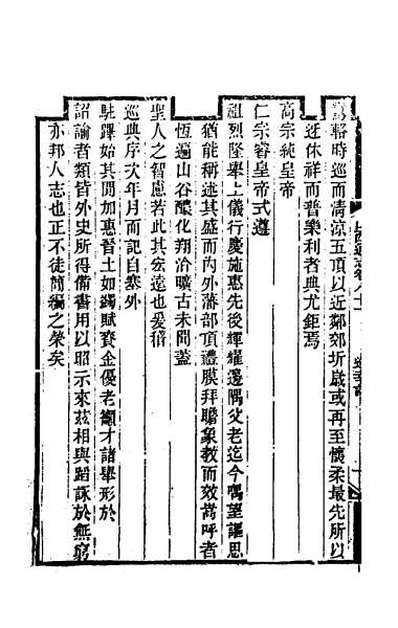 鸞輅時巡而清涼五頂以近鄰郊圻歲或再至懷柔最先所以
迓休祥而普樂利者典尤鉅焉
高宗純皇帝
仁宗睿皇帝式遵
祖烈隆舉上儀行慶施惠先後輝耀邊隅父老迄今喁望謳思
猶能稱述其盛而內外藩部頂禮膜拜瞻象教而效嵩呼者
恆遍山谷醲化翔洽曠古未閒蓋
聖人之智慮若此其宏遠也爰稽
巡典序次年月而記自塞外
駐蹕始其閒加惠晉土如蠲賦賚金優老籲才諸舉形於
詔諭者類皆外史所得備書用以昭示來茲相與蹈詠於無窮
亦邦人志也正不徒簡編之榮矣
山西通志卷八十一
巡幸記